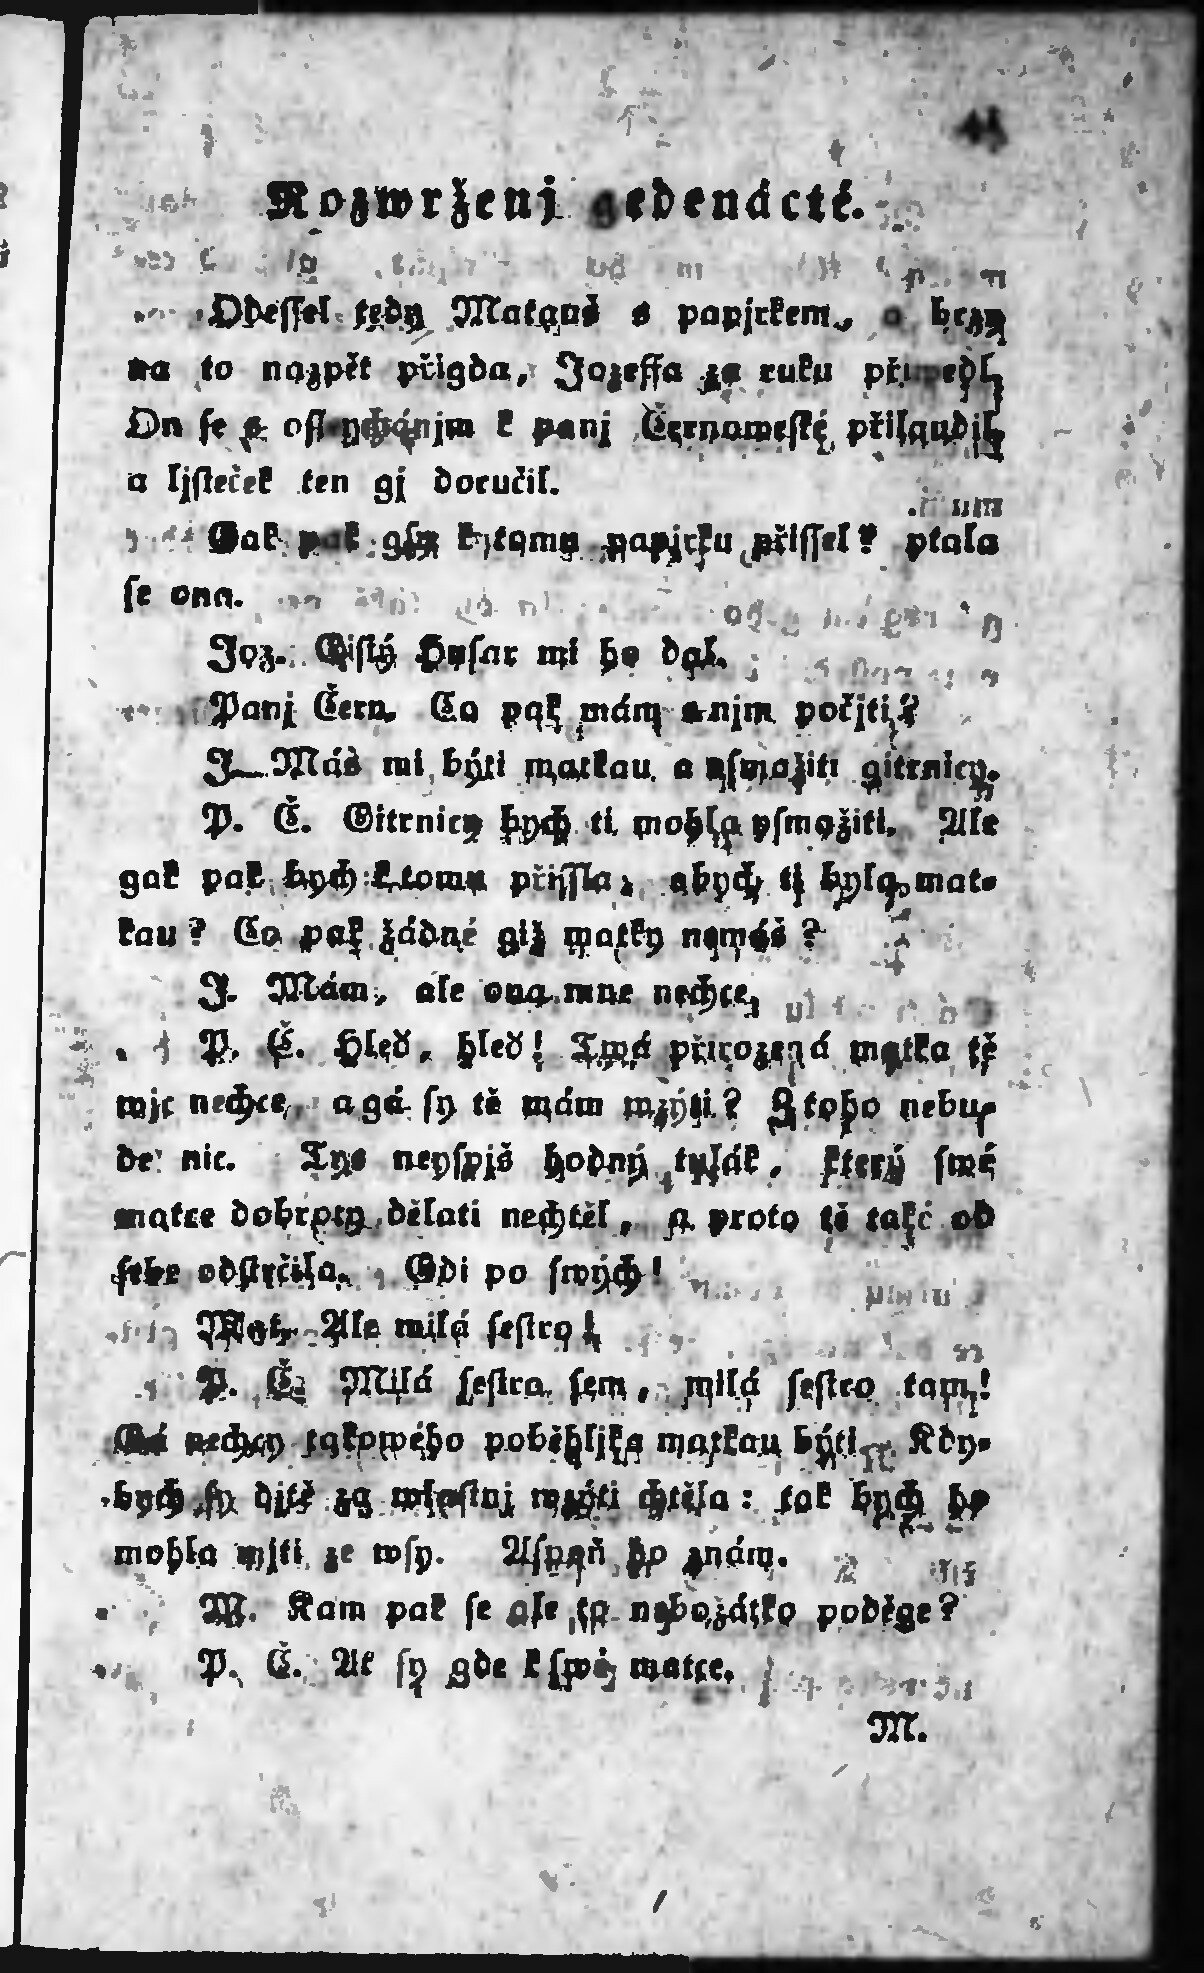 Rozwrženj gedenácté.
Odeſſel tedy Mataus s papjrkem, a brzy
na to nazpět přigda, Jozeffa za ruku přiwedl,
On ſe s oſleycháním k panj Černoweſké přilaudil,
a ljſteček ten gj doručil.
Gak pak gſy k tomu papjrku přiſſel? ptala
ſe ona.
Joz. Giſtý Huſar mi ho dal.
Panj Čern. Co pak mám s njm počjti?
J. Máš mi býti matkau a vſmažiti gitrnicy.
P. Č. Gitrnicy bych ti mohla vſmažiti. Ale
gak pak bych k tomu přiſſla, abych ti byla mat-
kau? Co pak žádné giž matky nemáš?
J. Mám, ale ona mne nechce,
P. Č. Hleď, hleď! Twá přirozená matka tě
wjc nechce, a gá ſy tě mám wzýti? Z toho nebu-
de nic. Tys neyſpjš hodný tulák, který ſwé
matce dobroty dělati nechtěl, a proto tě také od
ſebe odſtrčila. Gdi po ſwých!
Mat. Ale milá ſeſtro!
P. Č. Milá ſeſtro ſem, milá ſeſtro tam!
Gá nechcy takowého poběhljka matkau býti. Kdy-
bych ſy djtě za wlaſtnj wzýti chtěla: tak bych ho
mohla mjti ze wſy. Aſpoň ho znám.
M. Kam pak ſe ale to nebožátko poděge?
P. Č. At ſy gde k ſwé matce.
M.